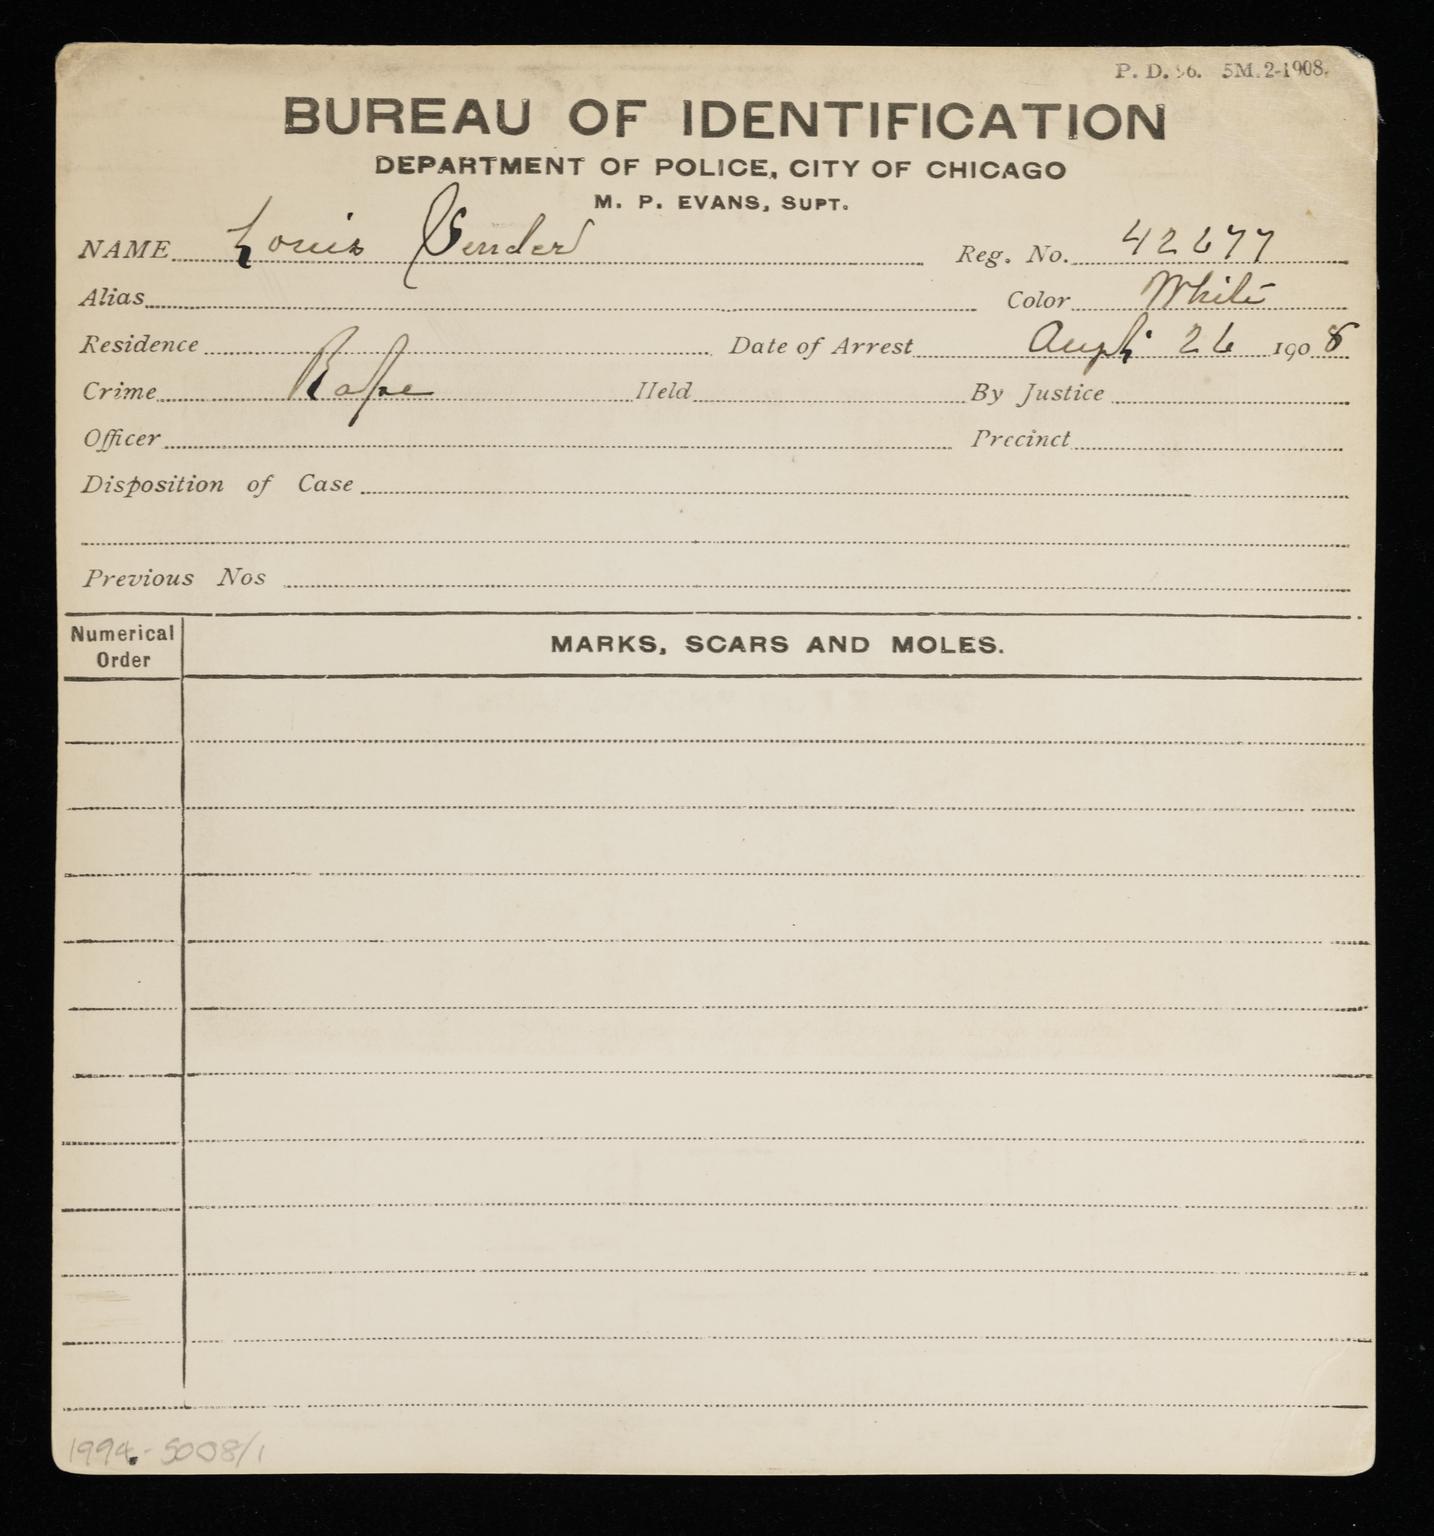 P. D. 96. 5M. 2-1908.
BUREAU OF IDENTIFICATION
DEPARTMENT OF POLICE, CITY OF CHICAGO
M. P. EVANS, SUPT.
NAME Louis Bender Reg. No. 42677
Alias Color White
Residence Date of Arrest Augt 26 1908
Crime Rape Held By Justice
Officer Precinct
Disposition of Case
Previous Nos
Numerical Order MARKS, SCARS AND MOLES.
1994.-5008/1